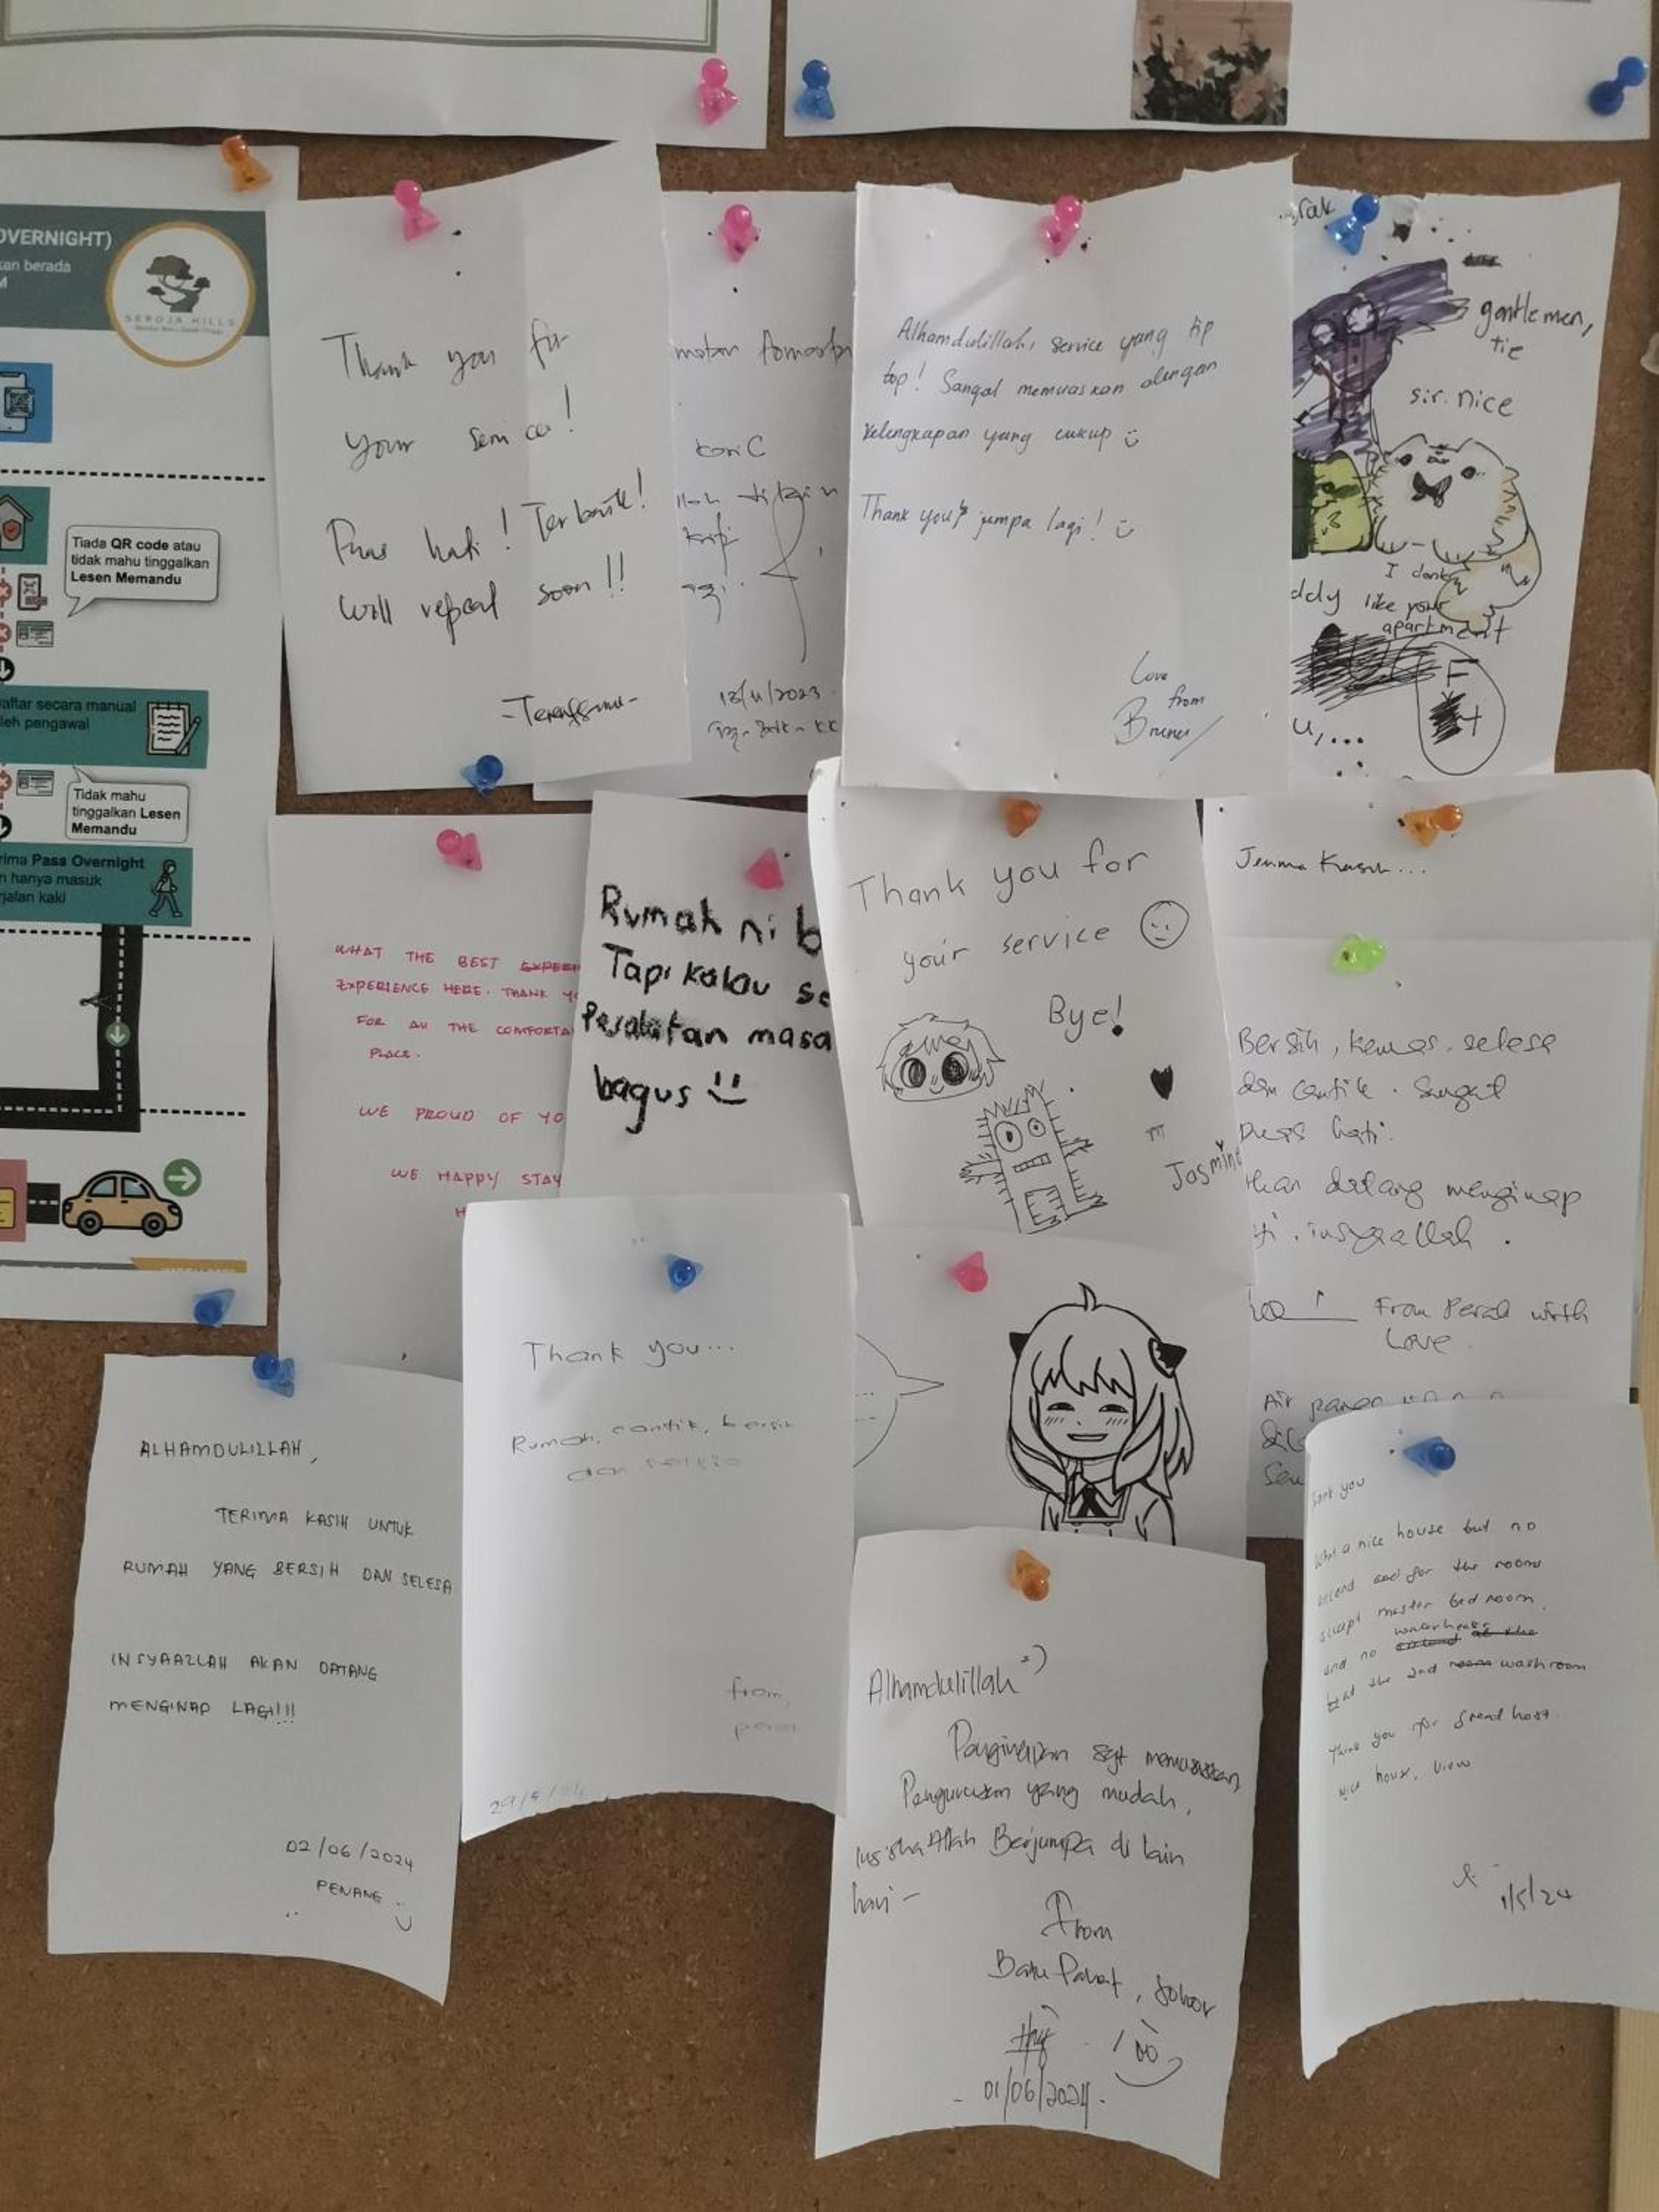 OVERNIGHT)
kan berada
SEROJA HILLS
Tiada QR code atau
tidak mahu tinggalkan
Lesen Memandu
aftar secara manual
leh pengawal
Tidak mahu
tinggalkan Lesen
Memandu
rima Pass Overnight
n hanya masuk
rjalan kaki
Thank you for
your service!
Puas hati! Terbaik!
Will repeat soon!!
13/11/2023
Alhamdulillah, service yang tip
top! Sangat memuaskan dengan
kelengkapan yang cukup
Thank you & jumpa lagi!
Love
from
Brunei
gentlemen,
tie
sir. nice
I dont
ddy like your
apartment
u,...
WHAT THE BEST
EXPERIENCE HERE. THANK YO
FOR All THE COMFORTA
PLACE.
WE PROUD OF YO
WE HAPPY STAY
Rumah ni b
Tapi kalau se
Peralatan masa
bagus
Thank you for
your service
Bye!
Jasmine
Bersih, kemas, selesa
dan cantik. Sangat
puas hati.
kan datang menginap
insyaallah.
From Perak with
Love
Air panas
ALHAMDULILLAH,
TERIMA KASIH UNTUK
RUMAH YANG BERSIH DAN SELESA
INSYAALLAH AKAN DATANG
MENGINAP LAGI!!!
02/06/2024
PENANG
Thank you...
Rumah, cantik, bersih
dan selesa
from,
perak
Alhamdulillah =)
Penginapan sgt memuaskan,
Pengurusan yang mudah,
Insha Allah Berjumpa di lain
hari -
From
Batu Pahat, Johor
- 01/06/2024 -
hank you
What a nice house but no
and for the rooms
except master bed room.
and no waterheater
at the 2nd washroom
Thank you for great host.
Nice house, view
1/5/24